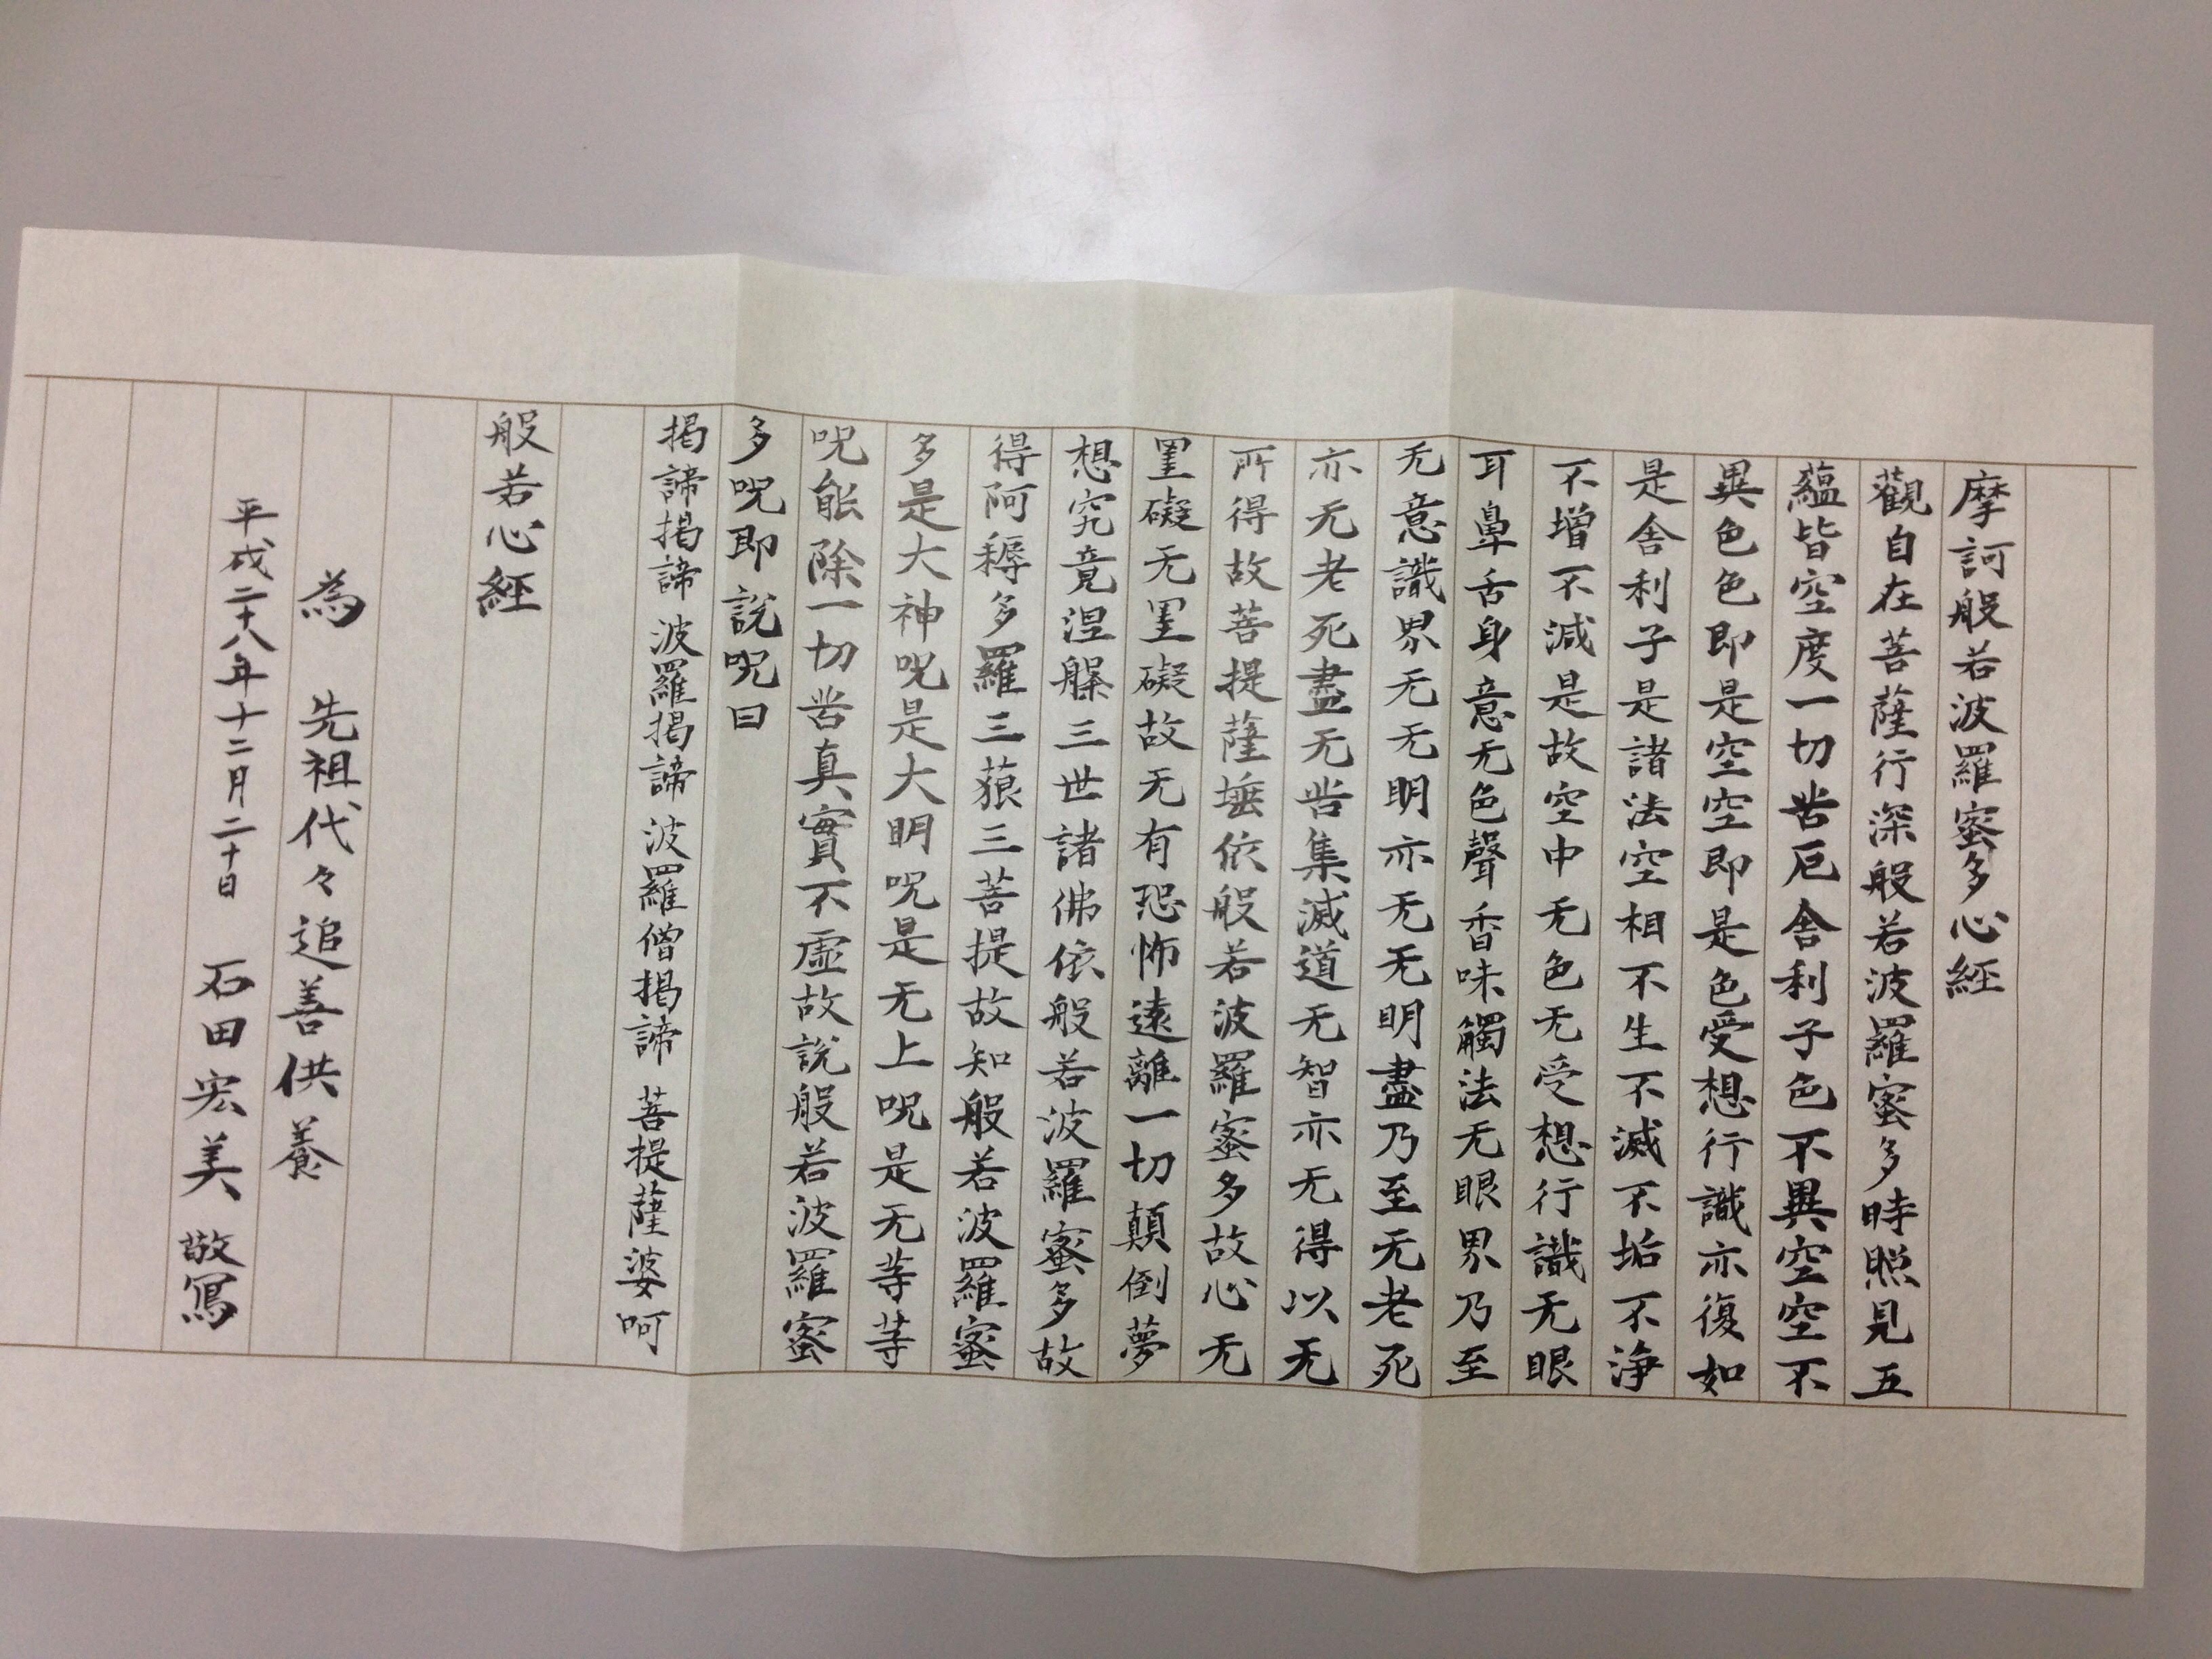 摩訶般若波羅蜜多心経
觀自在菩薩行深般若波羅蜜多時照見五
蘊皆空度一切苦厄舎利子色不異空空不
異色色即是空空即是色受想行識亦復如
是舎利子是諸法空相不生不滅不垢不浄
不増不減是故空中无色无受想行識无眼
耳鼻舌身意无色聲香味觸法无眼界乃至
无意識界无无明亦无无明盡乃至无老死
亦无老死盡无苦集滅道无智亦无得以无
所得故菩提薩埵依般若波羅蜜多故心无
罣礙无罣礙故无有恐怖遠離一切顛倒夢
想究竟涅槃三世諸佛依般若波羅蜜多故
得阿耨多羅三藐三菩提故知般若波羅蜜
多是大神呪是大明呪是无上呪是无等等
呪能除一切苦真實不虚故説般若波羅蜜
多呪即説呪曰
掲諦掲諦 波羅掲諦 波羅僧掲諦 菩提薩婆呵
般若心経
為 先祖代々追善供養
平成二十八年十二月二十日 石田宏美 敬寫